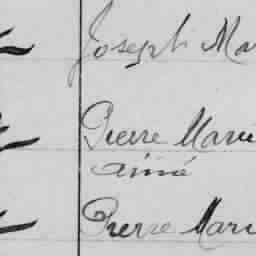 Joseph Mar
Pierre Marie
aimé
Pierre Mari